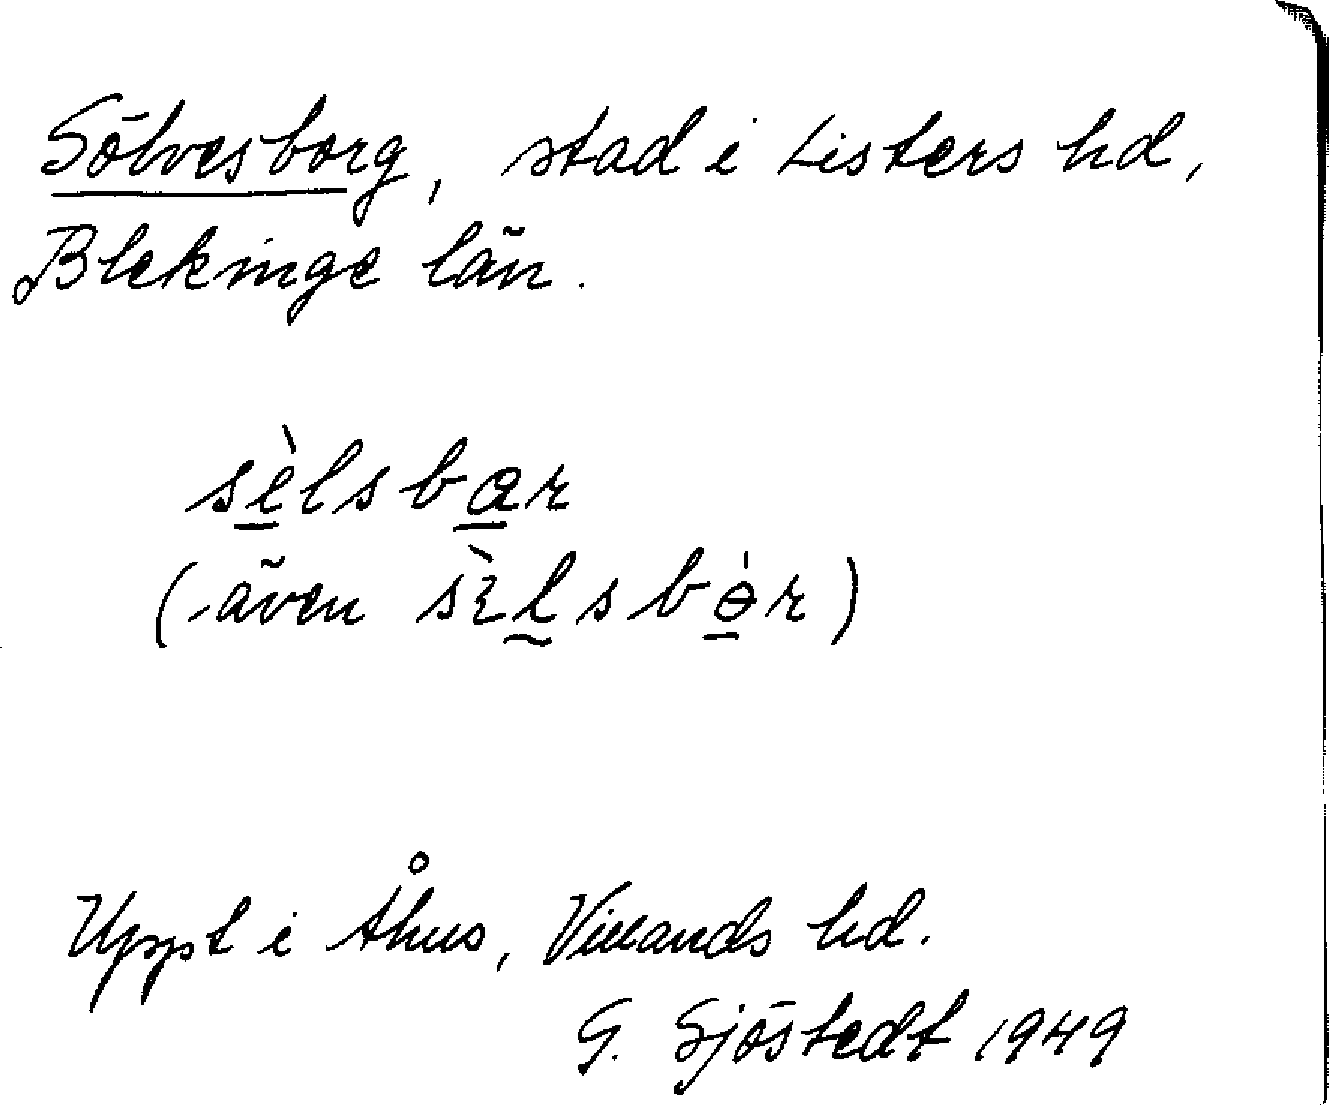 Sölvesborg, stad i Listers hd,
Blekinge län.
sèlsbar
(även sèlsbɵr)
Uppt i Åhus, Villands hd.
G. Sjöstedt 1949